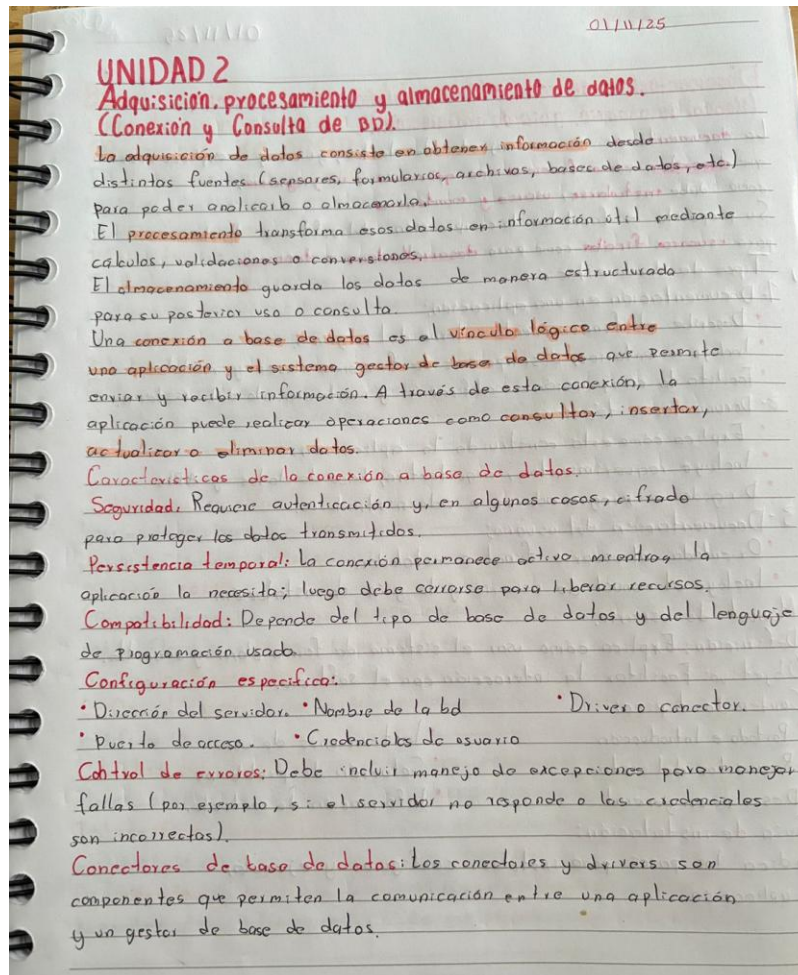 01/11/25
UNIDAD 2
Adquisición, procesamiento y almacenamiento de datos.
(Conexión y Consulta de BD).
La adquisición de datos consiste en obtener información desde
distintas fuentes (sensores, formularios, archivos, bases de datos, etc.)
para poder analizarla o almacenarla.
El procesamiento transforma esos datos en información útil mediante
cálculos, validaciones o conversiones.
El almacenamiento guarda los datos de manera estructurada
para su posterior uso o consulta.
Una conexión a base de datos es el vínculo lógico entre
una aplicación y el sistema gestor de base de datos que permite
enviar y recibir información. A través de esta conexión, la
aplicación puede realizar operaciones como consultar, insertar,
actualizar o eliminar datos.
Características de la conexión a base de datos.
Seguridad. Requiere autenticación y, en algunos casos, cifrado
para proteger los datos transmitidos.
Persistencia temporal: La conexión permanece activa mientras la
aplicación la necesita; luego debe cerrarse para liberar recursos.
Compatibilidad: Depende del tipo de base de datos y del lenguaje
de programación usado.
Configuración específica:
• Dirección del servidor. • Nombre de la bd • Driver o conector.
• Puerto de acceso. • Credenciales de usuario
Control de errores: Debe incluir manejo de excepciones para manejar
fallas (por ejemplo, si el servidor no responde o las credenciales
son incorrectas).
Conectores de base de datos: Los conectores y drivers son
componentes que permiten la comunicación entre una aplicación
y un gestor de base de datos.